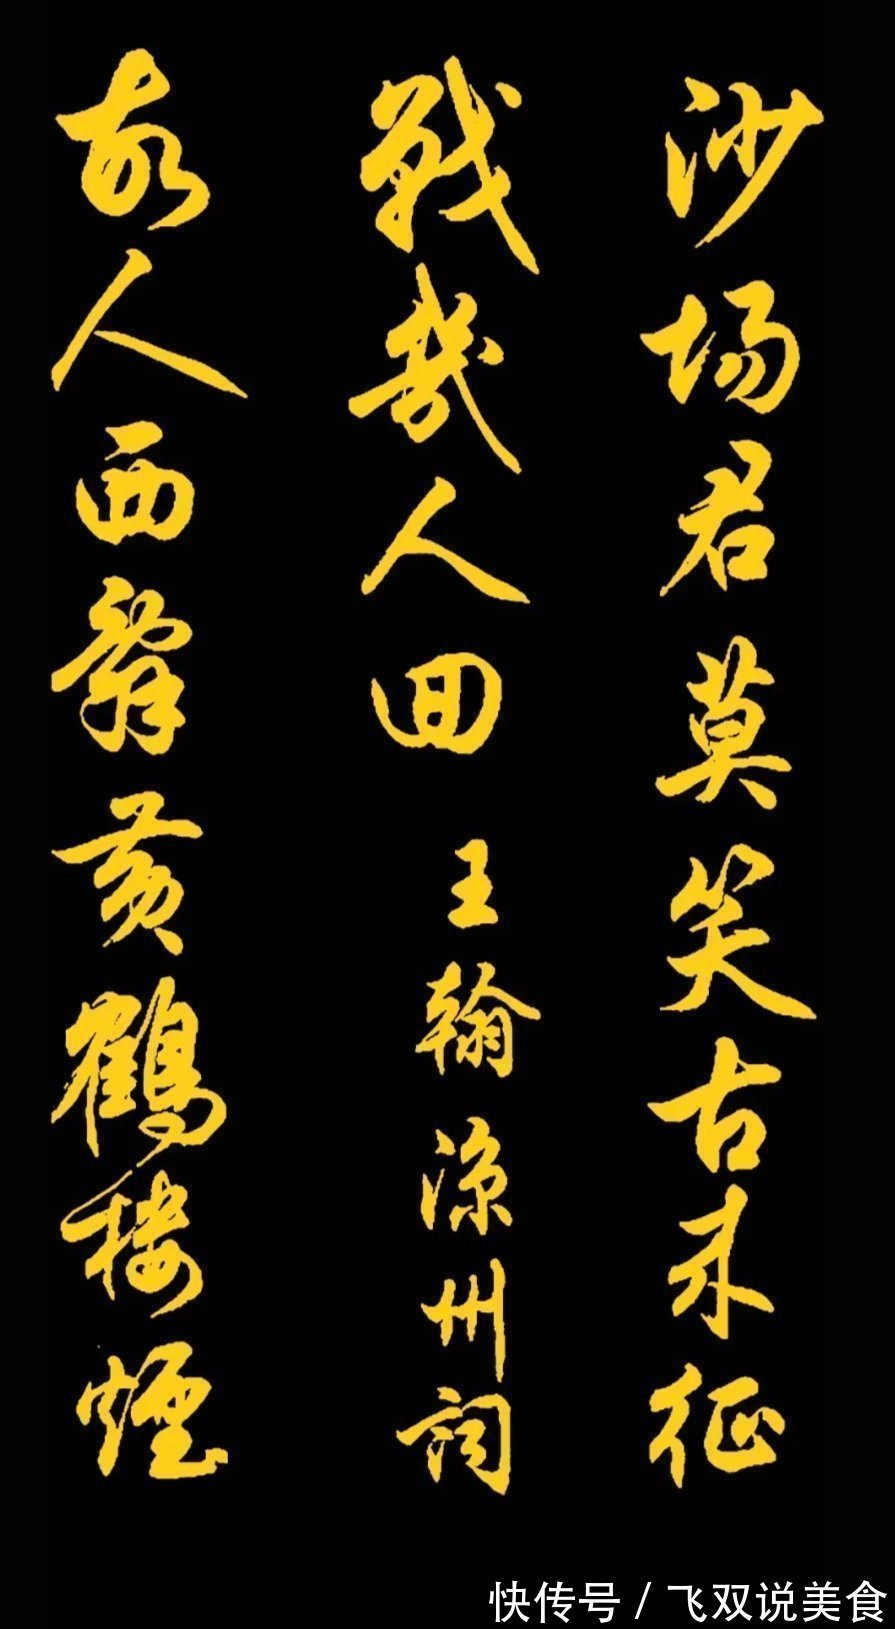 沙场君莫笑古来征
战几人回 王翰凉州词
故人西辞黄鹤楼烟
快传号/飞双说美食